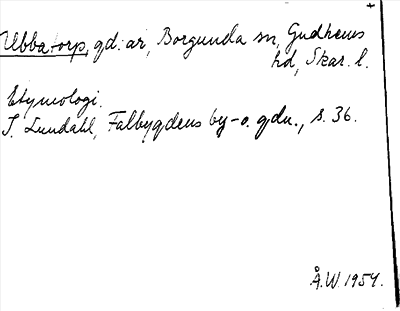 Ubbatorp, gd: ar, Borgunda sn, Gudhems
hd, Skar. l.
Etymologi.
I. Lundahl, Falbygdens by- o. gdn., s. 36.
Å.W. 1954.